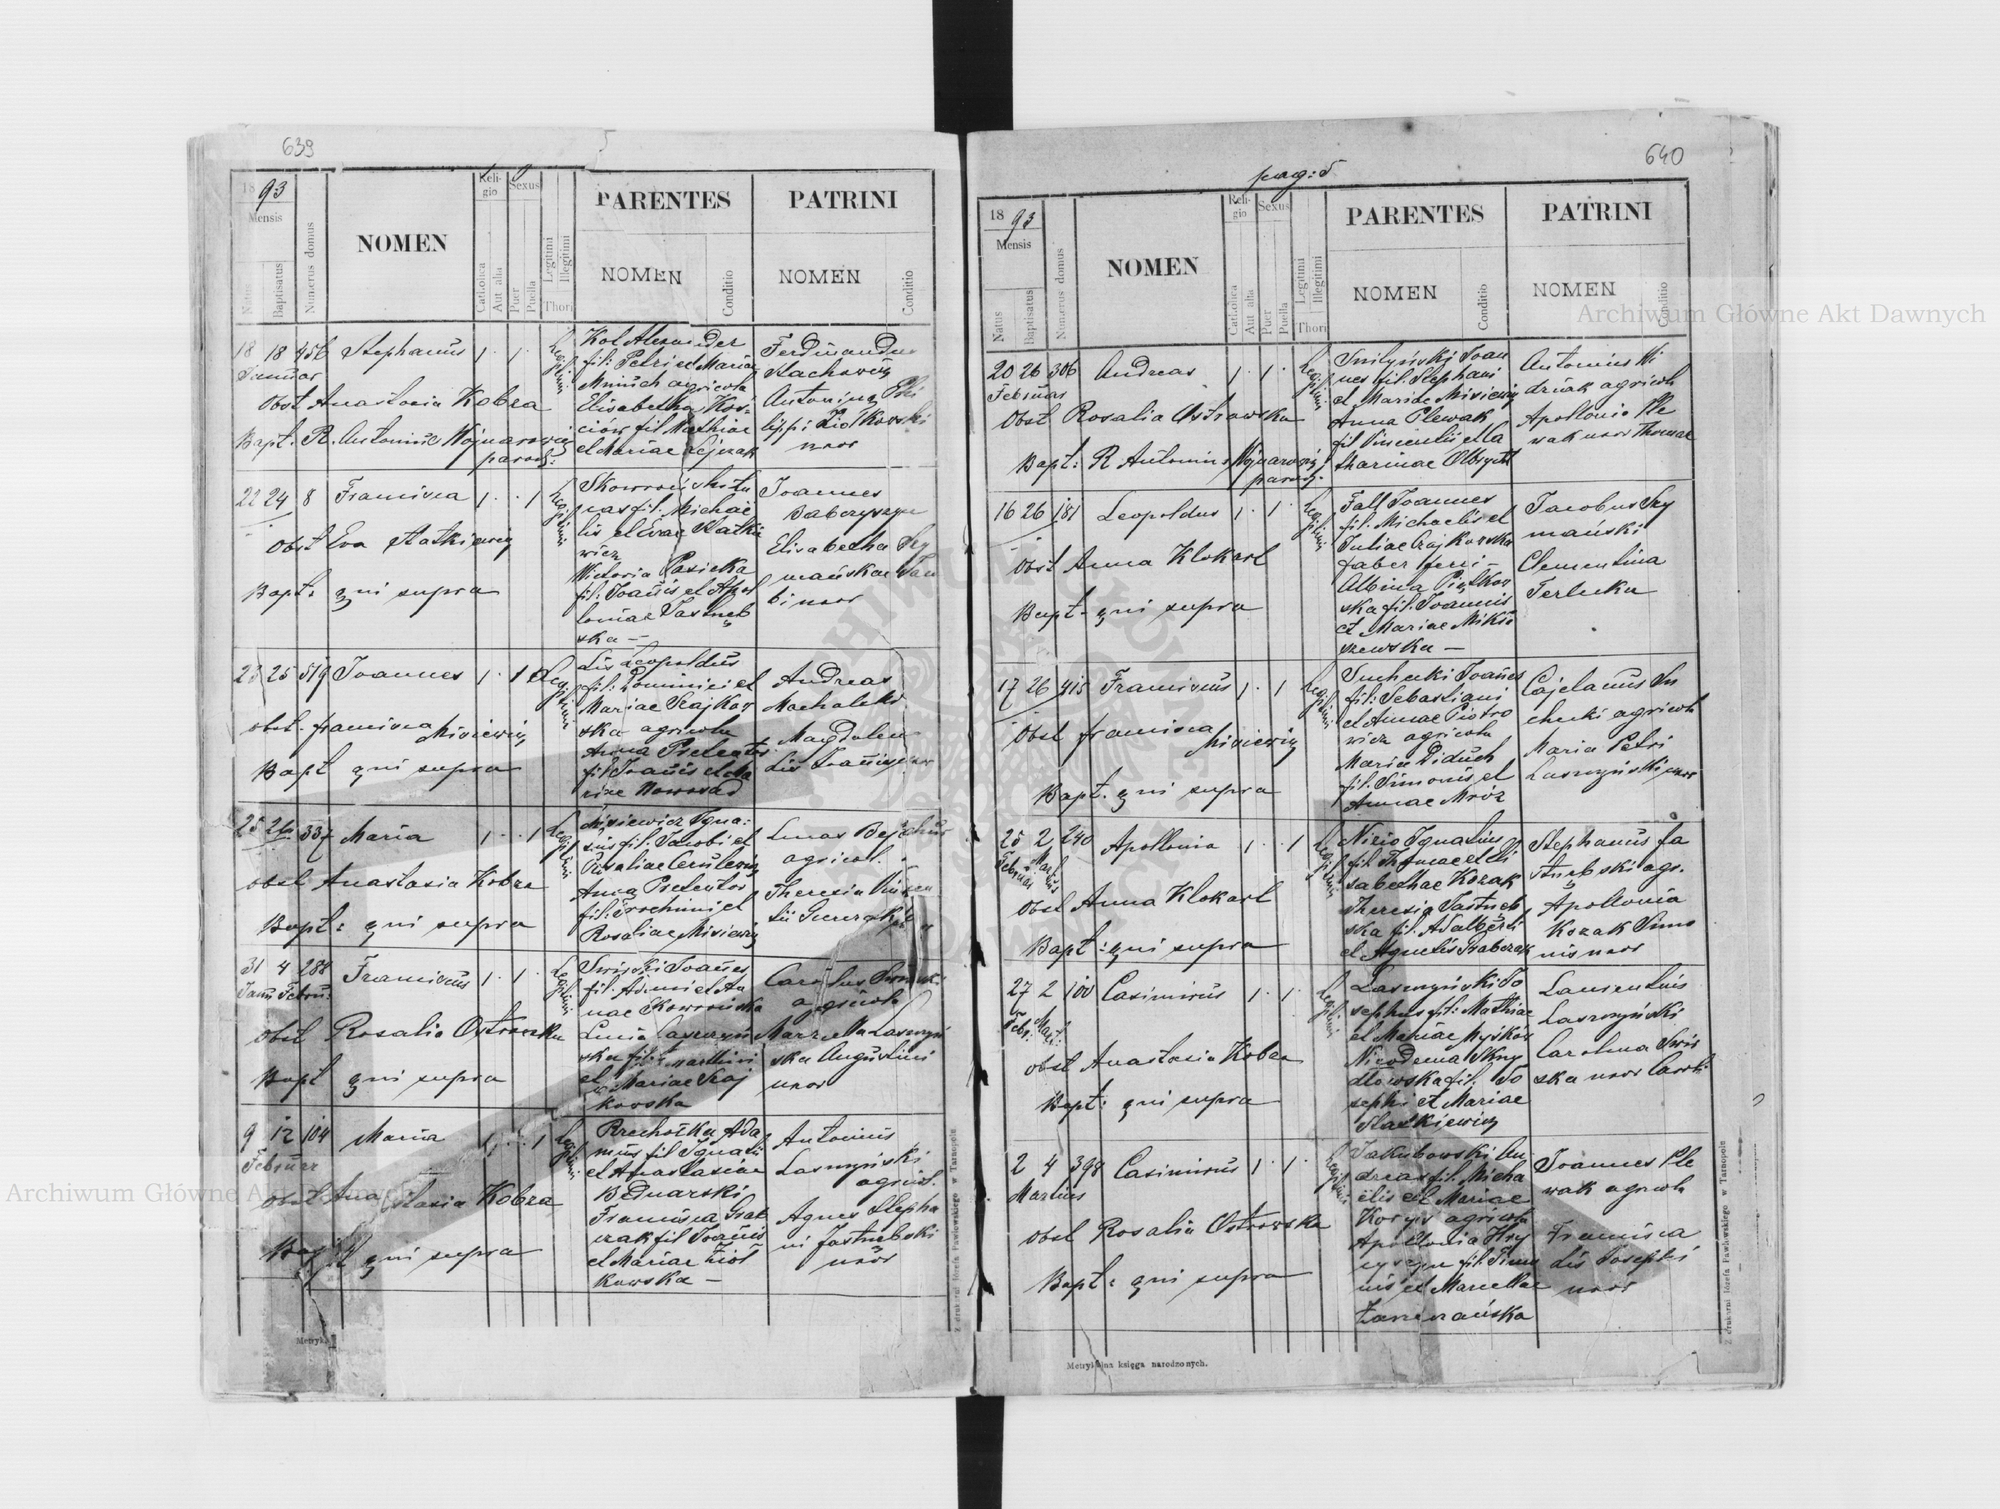 639
18 93
Mensis
Natus
Baptisatus
Numerus domus
NOMEN
Reli-
gio
Catholica
Aut alia
Sexus
Puer
Puella
Legitimi
Illegitimi
Thori
PARENTES
NOMEN
Conditio
PATRINI
NOMEN
Conditio
18 18 456 Stephanus 1 · 1 ·
Januar
Obst Anastasia Kobza
Bapt. R. Antonius Wojnarowicz
paroch:
Legitimi
Kol Alexander
fil: Petri et Mariae
Mnuch agricola
Elisabetha Koś-
ciów fil Mathiae
et Mariae
Ferdinandus
Stachowicz
Antonina Phi
lippi Ziołkowski
uxor
22 24 8 Francisca 1 · · 1
Obst Eva Statkiewicz
Bapt: qui supra
Legitimi
Skowroński
fil. Michae
lis et Evae Statkie
wicz
Victoria Pasieka
fil: Joannis et Apol
loniae Jastrzęb
ska —
Joannes
Babczyszyn
Elisabetha Szy
mańska
uxor
23 25 519 Joannes 1 · 1
Obst. Francisca Misiewicz
Bapt qui supra
Legitimi
Lis Leopoldus
fil: Dominici et
Mariae Czajkow
ska agricola
Anna Preteutor
fil Joannis et Ma
riae Nowosad
Andreas
Machalski
Magdalena
Lis Joannis uxor
25 26 337 Maria 1 · · 1
Obst Anastasia Kobza
Bapt: qui supra
Legitimi
Misiewicz Igna-
tius fil. Jacobi et
Rosaliae
Anna Preteutor
fil: Trochimi et
Rosaliae Misiewicz
Lucas
agricol.
Theresia
31 4 288 Franciscus 1 · 1 ·
Janu Febru:
Obst Rosalia Ostrowska
Bapt qui supra
Legitimi
Swirski Joannes
fil. Adami et An
nae Skowrońska
Lucia Laszczyń
ska fil: Matthaei
et Mariae Czaj
kowska
Carolus Swirski
agricola
Marianna Laszczyń
ska Augustini
uxor
9 12 104 Maria 1 · · 1
Februar
Obst Anastasia Kobza
Bapt qui supra
Legitimi
Prucholka Ada
mus fil Ignatii
et Anastasiae
Bednarski
Francisca
fil Joannis
et Mariae Ziół
kowska —
Antonius
Laszczyński
agricol.
Agnes Stepha
ni Jastrzebski
uxor
Metryk
Z drukarni Józefa Pawłowskiego w Tarnopolu
640
pag: 5
18 93
Mensis
Natus
Baptisatus
Numerus domus
NOMEN
Reli-
gio
Catholica
Aut alia
Sexus
Puer
Puella
Legitimi
Illegitimi
Thori
PARENTES
NOMEN
Conditio
PATRINI
NOMEN
Conditio
20 26 306 Andreas 1 · 1 ·
Februar
Obst Rosalia Ostrowska
Bapt: R Antonius Wojnarowicz
paroch.
Legitimi
Smilyński Joan
nes fil. Stephani
et Mariae Misiewicz
Anna Plewak
fil Vincentii et Ca
tharinae Olbrycht
Antonius Wi
agricola
Apollonia Ple
wak uxor Thomae
16 26 181 Leopoldus 1 · 1
Obst Anna Klokart
Bapt - qui supra
Legitimi
Fall Joannes
fil. Michaelis et
Juliae Czajkowska
faber ferri -
Albina Piątkow
ska fil. Joannis
et Mariae Mikło
szewska —
Jacobus Szy
mański
Clementina
Terlecka
17 26 415 Franciscus 1 · 1
Obst Francisca Misiewicz
Bapt. qui supra
Legitimi
Suchecki Joannes
fil: Sebastiani
et Annae Piotro
wicz agricola
Maria Diduch
fil. Simonis et
Annae Mróz
Cajetanus Su
checki agricola
Maria Petri
Laszczyński uxor
25 2 240 Apollonia 1 · · 1
Februar Martius
Obst Anna Klokart
Bapt: qui supra
Legitimi
Ignatius
fil Thomae et Eli
sabethae Kozak
Theresia Jastrzęb
ska fil. Adalberti
et Agnetis Grabczak
Stephanus Ja
strzębski agr.
Apollonia
Kozak Simo
nis uxor
27 2 100 Casimirus 1 · 1 ·
Febr: Mart:
Obst Anastasia Kobza
Bapt: qui supra
Legitimi
Laszczyński Jo
sephus fil: Mathiae
et Mariae Myśków
Nicodema Skny
dłowska fil. Jo
sephi et Mariae
Statkiewicz
Laurentius
Laszczyński
Carolina Swir
ska uxor Caroli
2 4 398 Casimirus 1 · 1 ·
Martius
Obst Rosalia Ostrowska
Bapt: qui supra
Legitimi
Jakubowski An
dreas fil. Micha
elis et Mariae
Korżyś agricola
Apollonia Hry
cyszyn fil. Simo
nis et Marcellae
Zarzecańska
Joannes Ple
wak agricola
Francisca
Lis Josephi
uxor
Metrykalna księga narodzonych.
Z drukarni Józefa Pawłowskiego w Tarnopolu
Archiwum Główne Akt Dawnych
Archiwum Główne Akt Dawnych